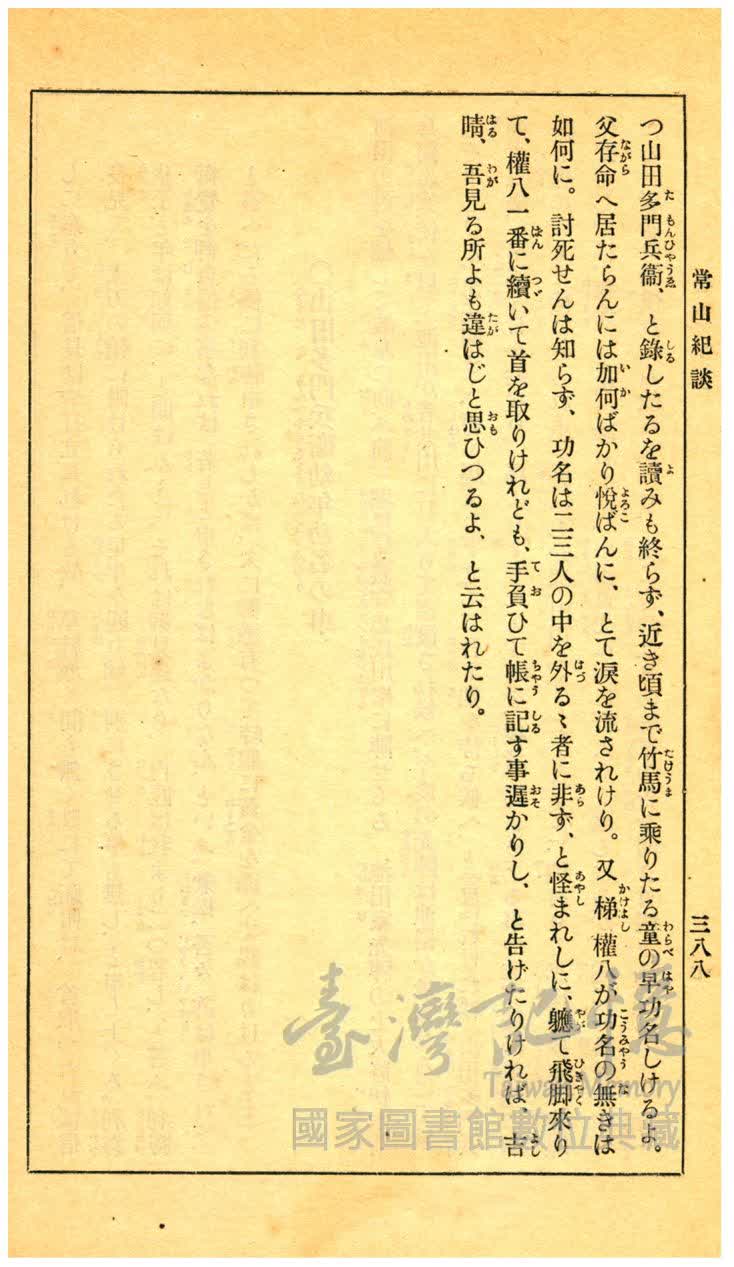 常山紀談
三八八
つ山田多門兵衞、と錄したるを讀みも終らず、近き頃まで竹馬に乘りたる童の早功名しけるよ。
父存命へ居たらんには加何ばかり悅ばんに、とて淚を流されけり。又梯權八が功名の無きは
如何に。討死せんは知らず、功名は二三人の中を外るゝ者に非ず、と怪まれしに、軈て飛脚來り
て、權八一番に續いて首を取りけれども、手負ひて帳に記す事遲かりし、と告げたりければ、吉
晴、吾見る所よも違はじと思ひつるよ、と云はれたり。
臺灣記憶
Taiwan Memory
國家圖書館數位典藏